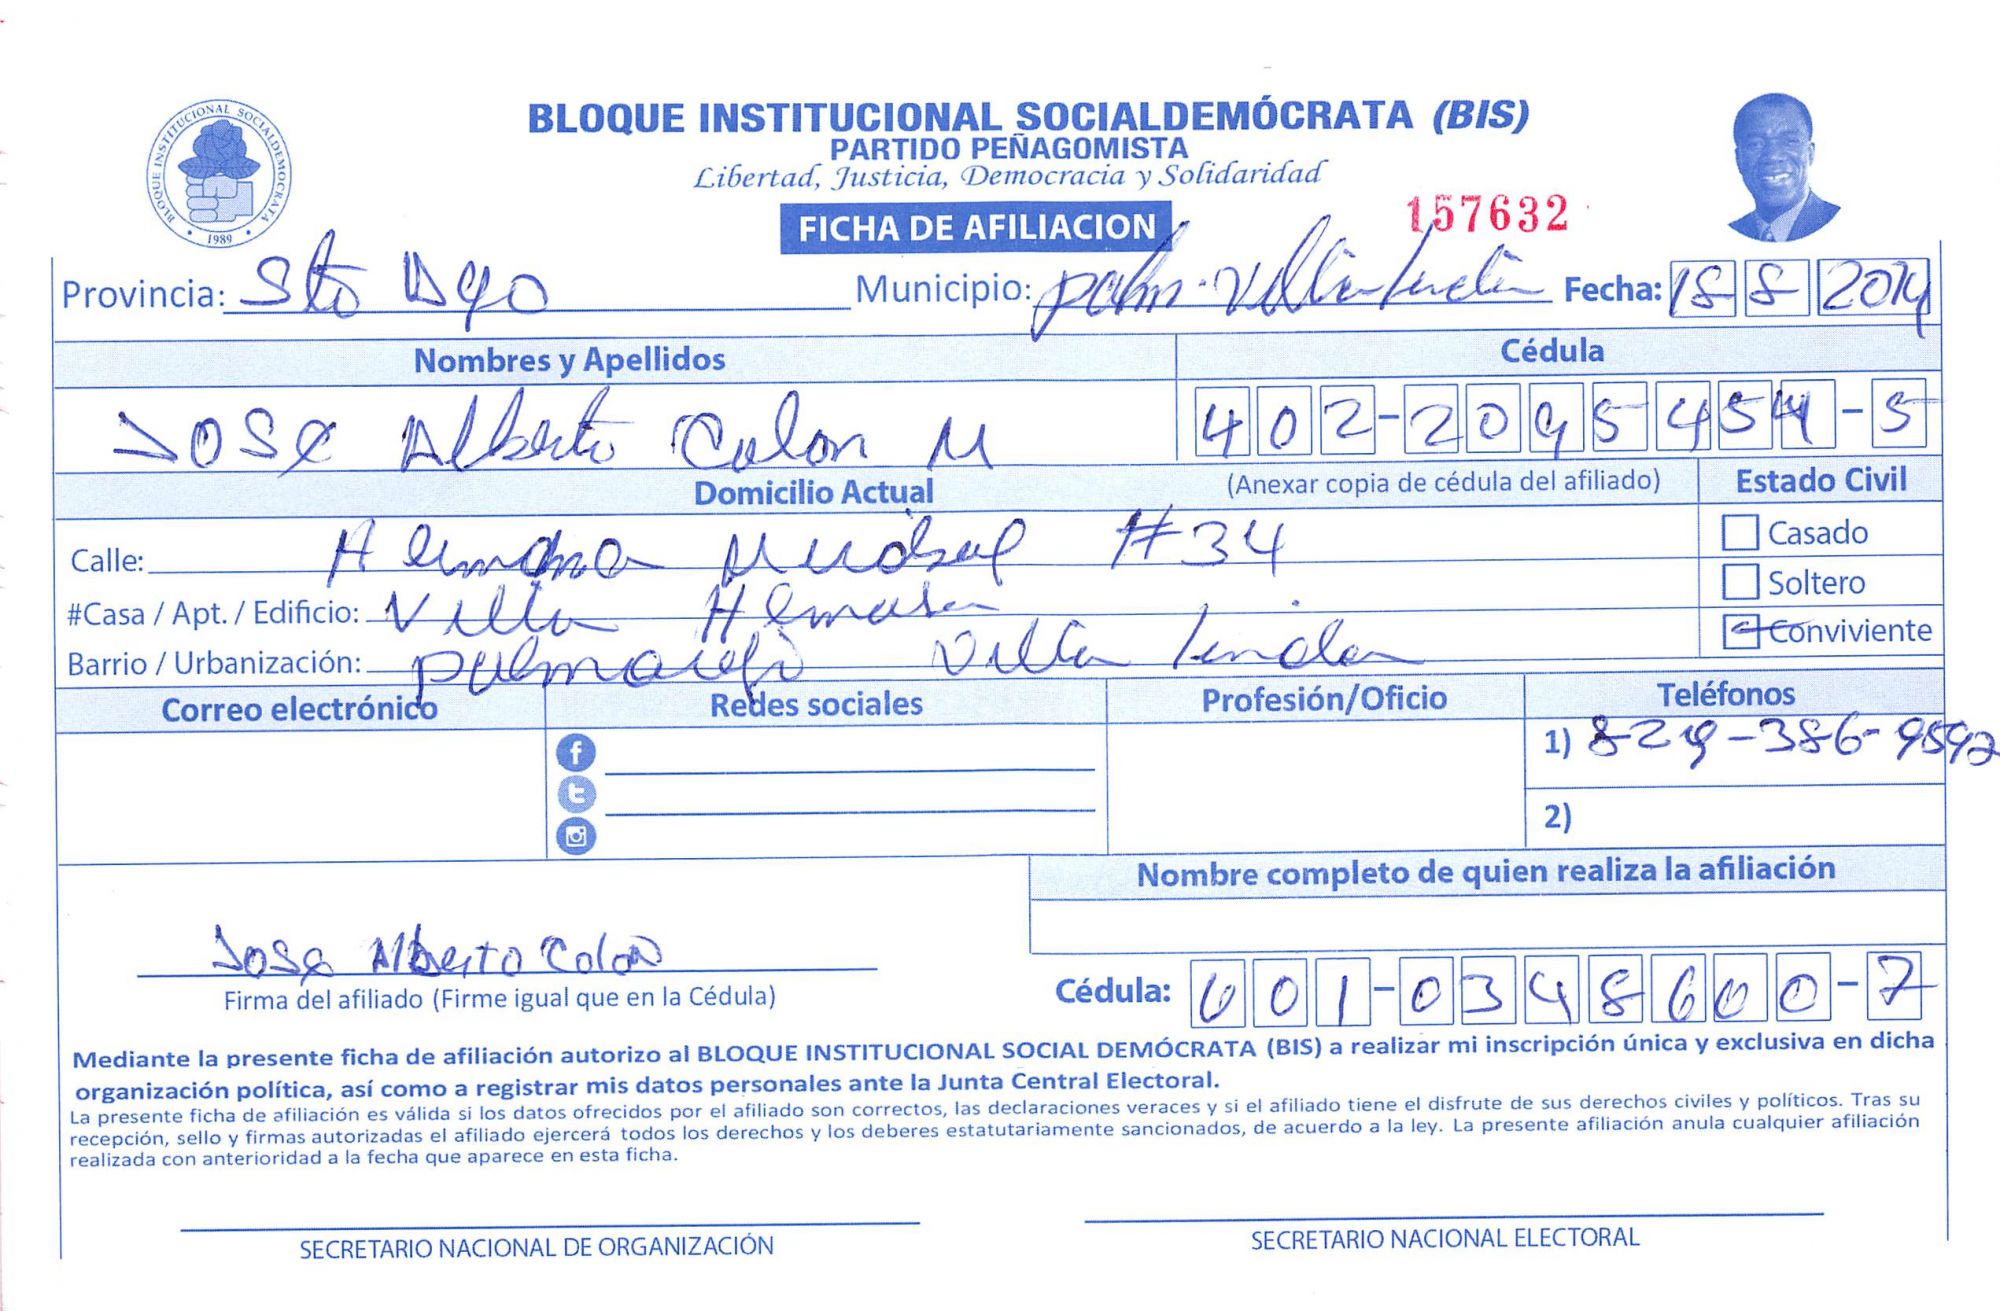 BLOQUE INSTITUCIONAL SOCIALDEMOCRATA
1989
BLOQUE INSTITUCIONAL SOCIALDEMÓCRATA (BIS)
PARTIDO PEÑAGOMISTA
Libertad, Justicia, Democracia y Solidaridad
157632
FICHA DE AFILIACION
Provincia: Sto Dgo Municipio: palm. Villa linda Fecha: 18 8 2019
Nombres y Apellidos Cédula
Jose Alberto Colon M 402-2095454-5
Domicilio Actual (Anexar copia de cédula del afiliado) Estado Civil
Calle: #34 Casado
#Casa / Apt. / Edificio: Villa Soltero
Barrio / Urbanización: Villa linda Conviviente
Correo electrónico Redes sociales Profesión/Oficio Teléfonos
1) 829-386-9592
2)
Nombre completo de quien realiza la afiliación
Jose Alberto Colon
Firma del afiliado (Firme igual que en la Cédula) Cédula: 001-0348600-7
Mediante la presente ficha de afiliación autorizo al BLOQUE INSTITUCIONAL SOCIAL DEMÓCRATA (BIS) a realizar mi inscripción única y exclusiva en dicha
organización política, así como a registrar mis datos personales ante la Junta Central Electoral.
La presente ficha de afiliación es válida si los datos ofrecidos por el afiliado son correctos, las declaraciones veraces y si el afiliado tiene el disfrute de sus derechos civiles y políticos. Tras su
recepción, sello y firmas autorizadas el afiliado ejercerá todos los derechos y los deberes estatutariamente sancionados, de acuerdo a la ley. La presente afiliación anula cualquier afiliación
realizada con anterioridad a la fecha que aparece en esta ficha.
SECRETARIO NACIONAL DE ORGANIZACIÓN SECRETARIO NACIONAL ELECTORAL